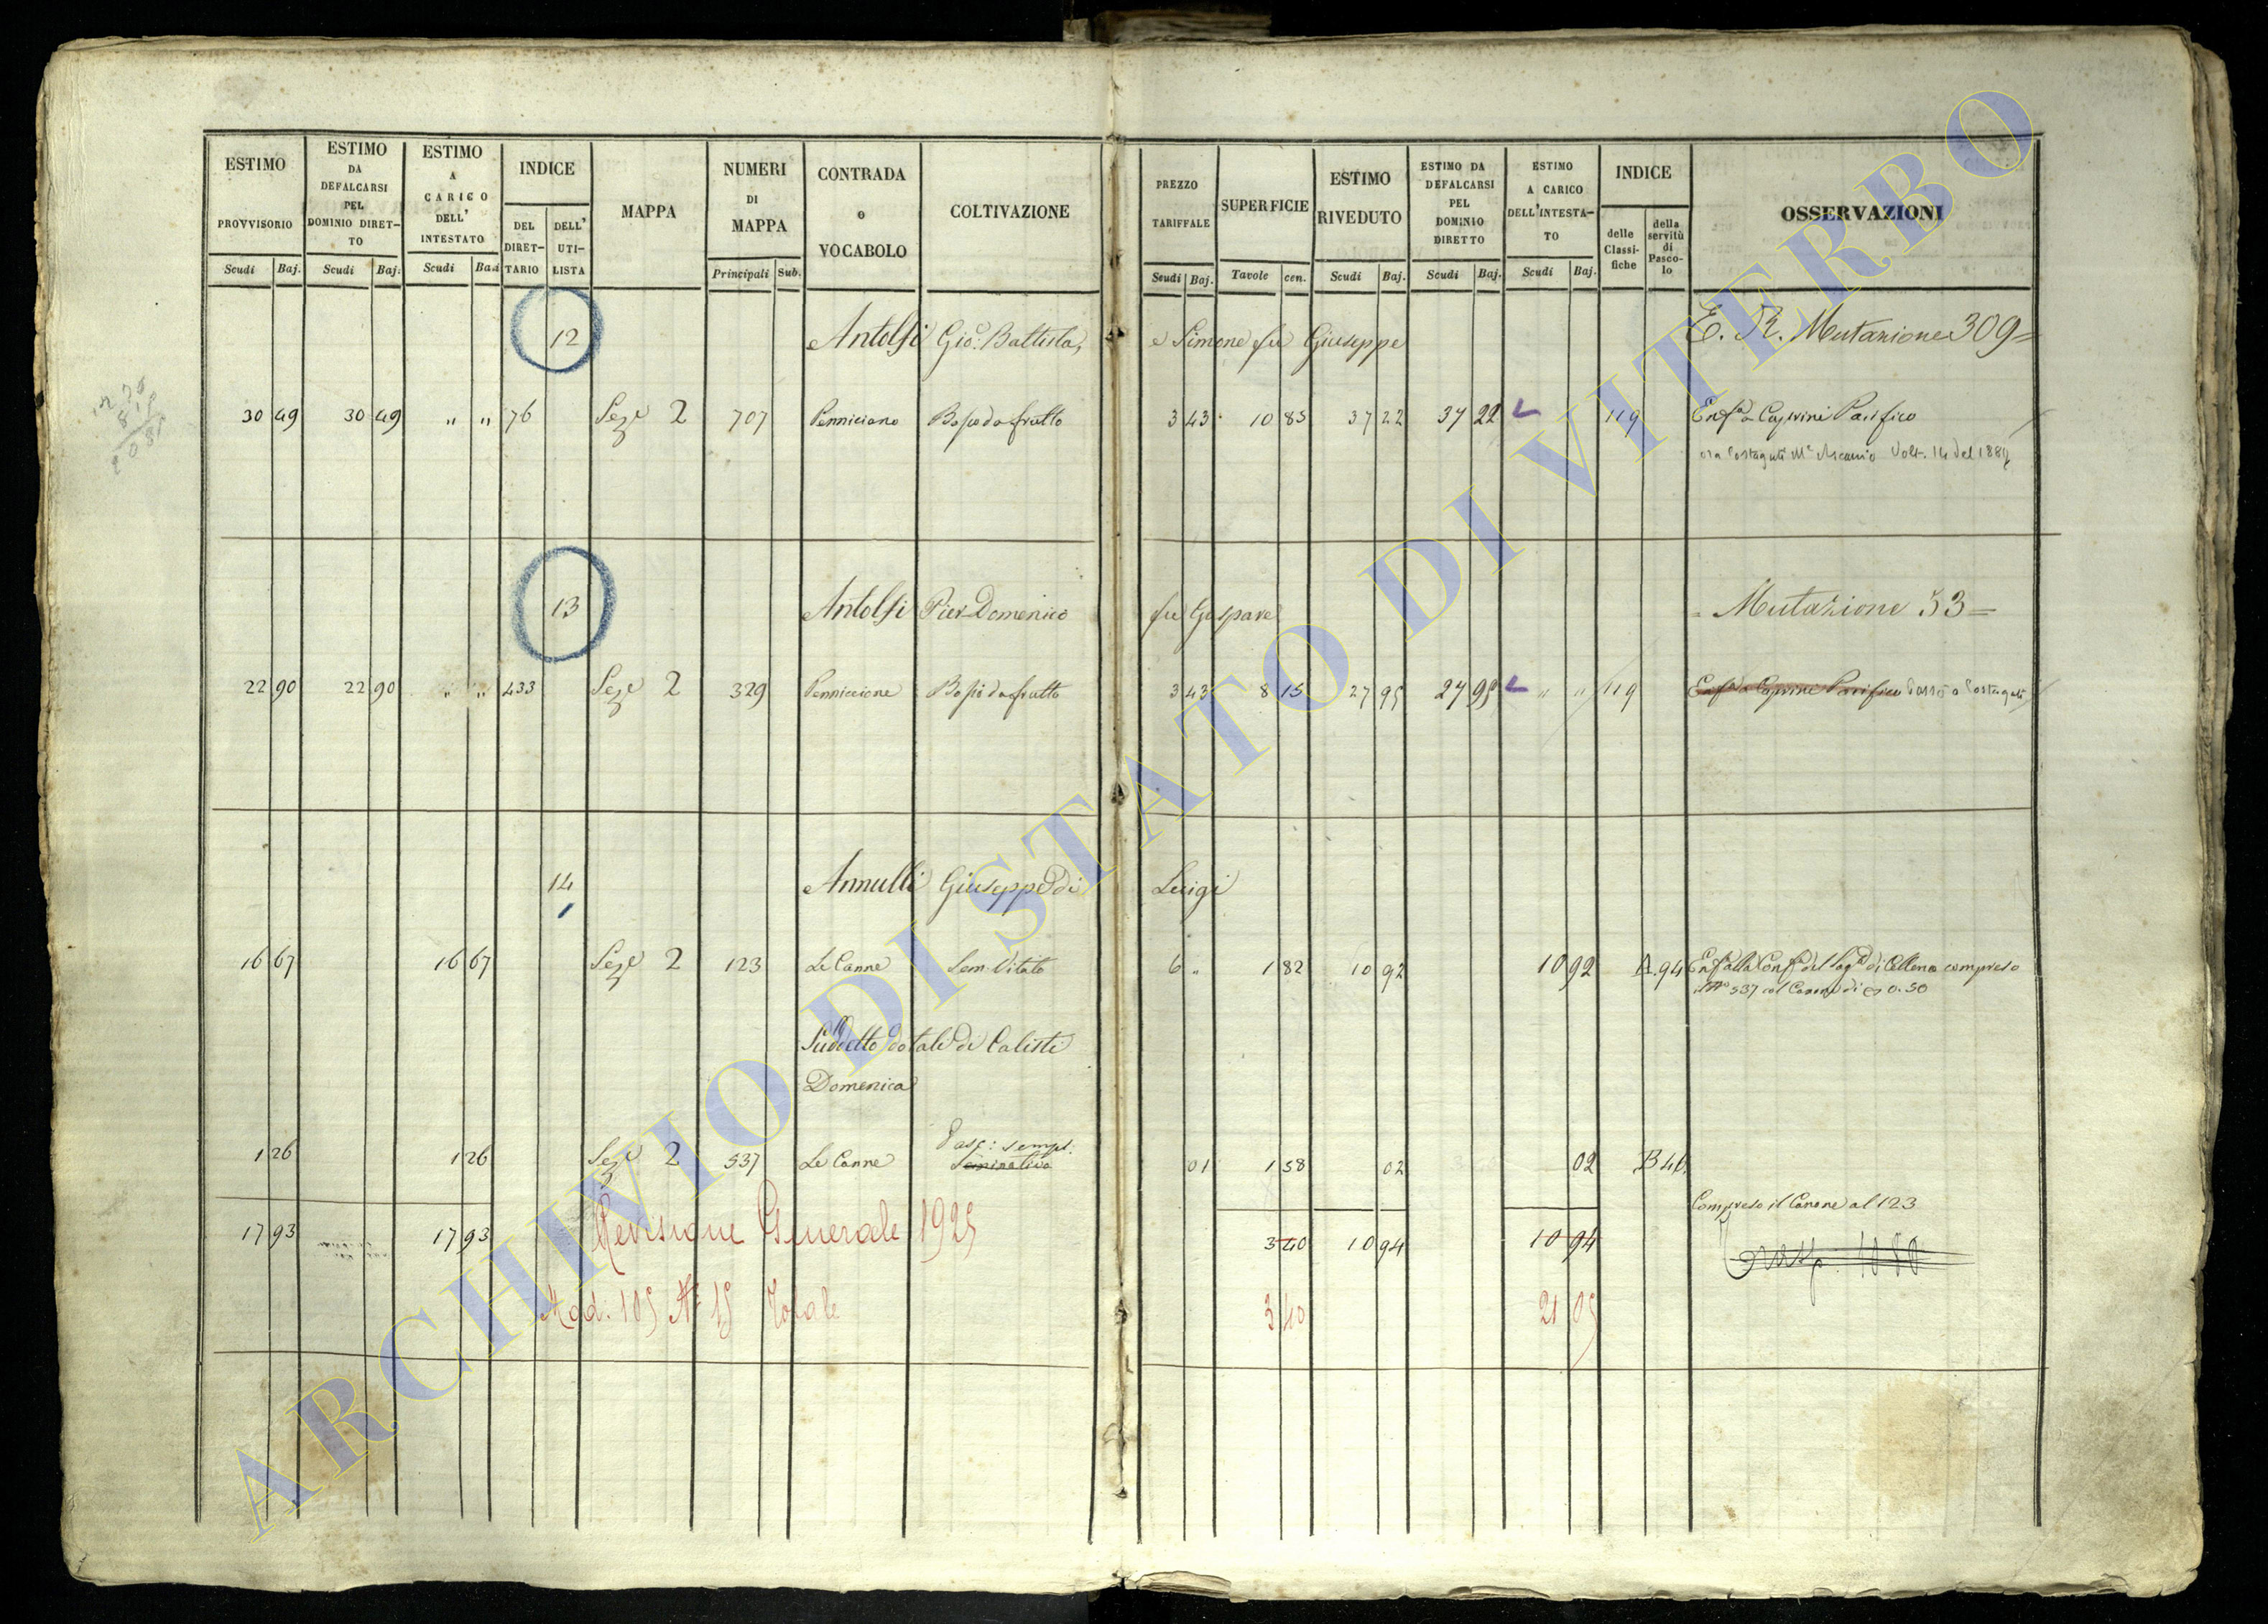 ESTIMO PROVVISORIO
Scudi Baj.
ESTIMO DA DEFALCARSI PEL DOMINIO DIRET-TO
Scudi Baj.
ESTIMO A CARICO DELL' INTESTATO
Scudi Baj.
INDICE
DEL DIRET-TARIO
DELL' UTI-LISTA
MAPPA
NUMERI DI MAPPA
Principali Sub.
CONTRADA o VOCABOLO
COLTIVAZIONE
PREZZO TARIFFALE
Scudi Baj.
SUPERFICIE
Tavole cen.
ESTIMO RIVEDUTO
Scudi Baj.
ESTIMO DA DEFALCARSI PEL DOMINIO DIRETTO
Scudi Baj.
ESTIMO A CARICO DELL'INTESTA-TO
Scudi Baj.
INDICE
delle Classi-fiche
della servitù di Pasco-lo
OSSERVAZIONI
12 Antolfi Gio: Battista, e Simone fu Giuseppe E. R. Mutazione 309=
30 49 30 49 " " 76 Sez.e 2 707 Penniciano Bosco da frutto 3 43 10 85 37 22 37 22 119 Enf.a a Caprini Pacifico
ora Costaguti M.e Ascanio Volt. 14 del 188
13 Antolfi Pier Domenico fu Gaspare = Mutazione 53=
22 90 22 90 " " 433 Sez.e 2 329 Penniccione Bosco da frutto 3 43 8 15 27 95 27 95 " " 119 Enf.a a Caprini Pacifico Passò a Costaguti
14 Annulli Giuseppe di Luigi
16 67 16 67 Sez.e 2 123 Le Canne Sem. Vitato 6 " 1 82 10 92 10 92 A. 94 Enf. alla Conf.a del Sag.o di Celleno compreso
il N.o 537 col Canone di 0.50
Suddetto dotale di Calisti
Domenica
Pasc: sempl:
1 26 1 26 Sez.e 2 537 Le Canne Seminativo 01 1 58 02 02 B 46
Compreso il Canone al 123
17 93 17 93 Revisione Generale 1925 3 40 10 94 10 94
Mod. 105 N° 15 Totale 3 40 21 05
ARCHIVIO DI STATO DI VITERBO